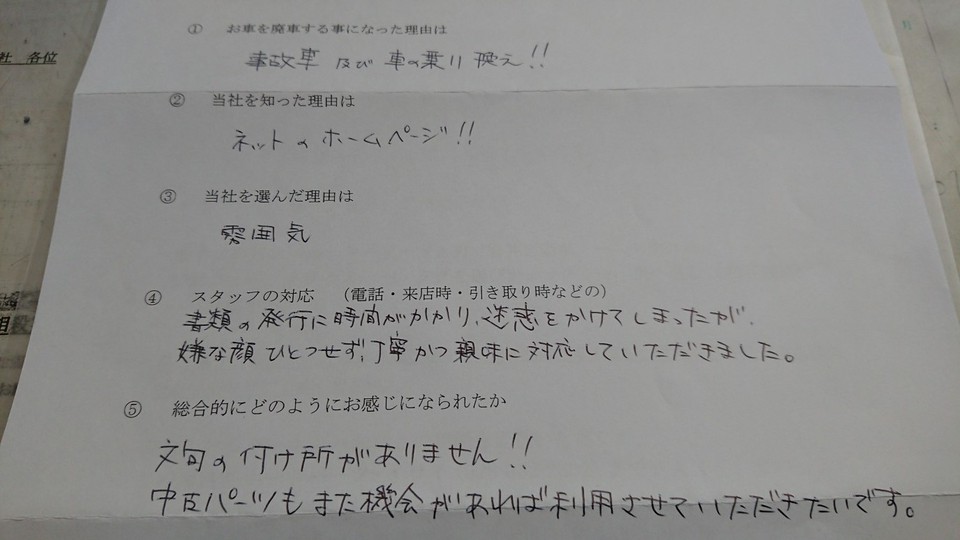 社 各位
① お車を廃車する事になった理由は
事故車 及び 車の乗り換え!!
② 当社を知った理由は
ネットのホームページ!!
③ 当社を選んだ理由は
雰囲気
④ スタッフの対応 (電話・来店時・引き取り時などの)
書類の発行に時間がかかり、迷惑をかけてしまったが、
嫌な顔ひとつせず、丁寧かつ親味に対応していただきました。
⑤ 総合的にどのようにお感じになられたか
文句の付け所がありません!!
中古パーツもまた機会があれば利用させていただきたいです。